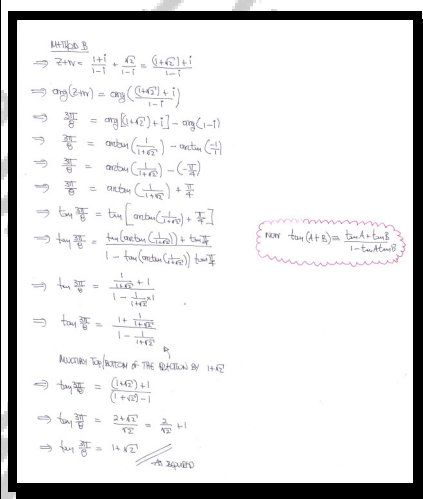 METHOD B
⇒ z+w = (1+i)/(1-i) + √2/(1-i) = ((1+√2)+i)/(1-i)
⇒ arg(z+w) = arg(((1+√2)+i)/(1-i))
⇒ 3π/8 = arg[(1+√2)+i] - arg(1-i)
⇒ 3π/8 = arctan(1/(1+√2)) - arctan(-1/1)
⇒ 3π/8 = arctan(1/(1+√2)) - (-π/4)
⇒ 3π/8 = arctan(1/(1+√2)) + π/4
⇒ tan 3π/8 = tan[arctan(1/(1+√2)) + π/4]
⇒ tan 3π/8 = (tan(arctan(1/(1+√2))) + tan π/4)/(1 - tan(arctan(1/(1+√2))) tan π/4)
NOW tan(A+B) = (tanA + tanB)/(1 - tanAtanB)
⇒ tan 3π/8 = (1/(1+√2) + 1)/(1 - 1/(1+√2) × 1)
⇒ tan 3π/8 = (1 + 1/(1+√2))/(1 - 1/(1+√2))
MULTIPLY TOP/BOTTOM OF THE FRACTION BY 1+√2
⇒ tan 3π/8 = ((1+√2)+1)/((1+√2)-1)
⇒ tan 3π/8 = (2+√2)/√2 = 2/√2 + 1
⇒ tan 3π/8 = 1+√2
AS REQUIRED